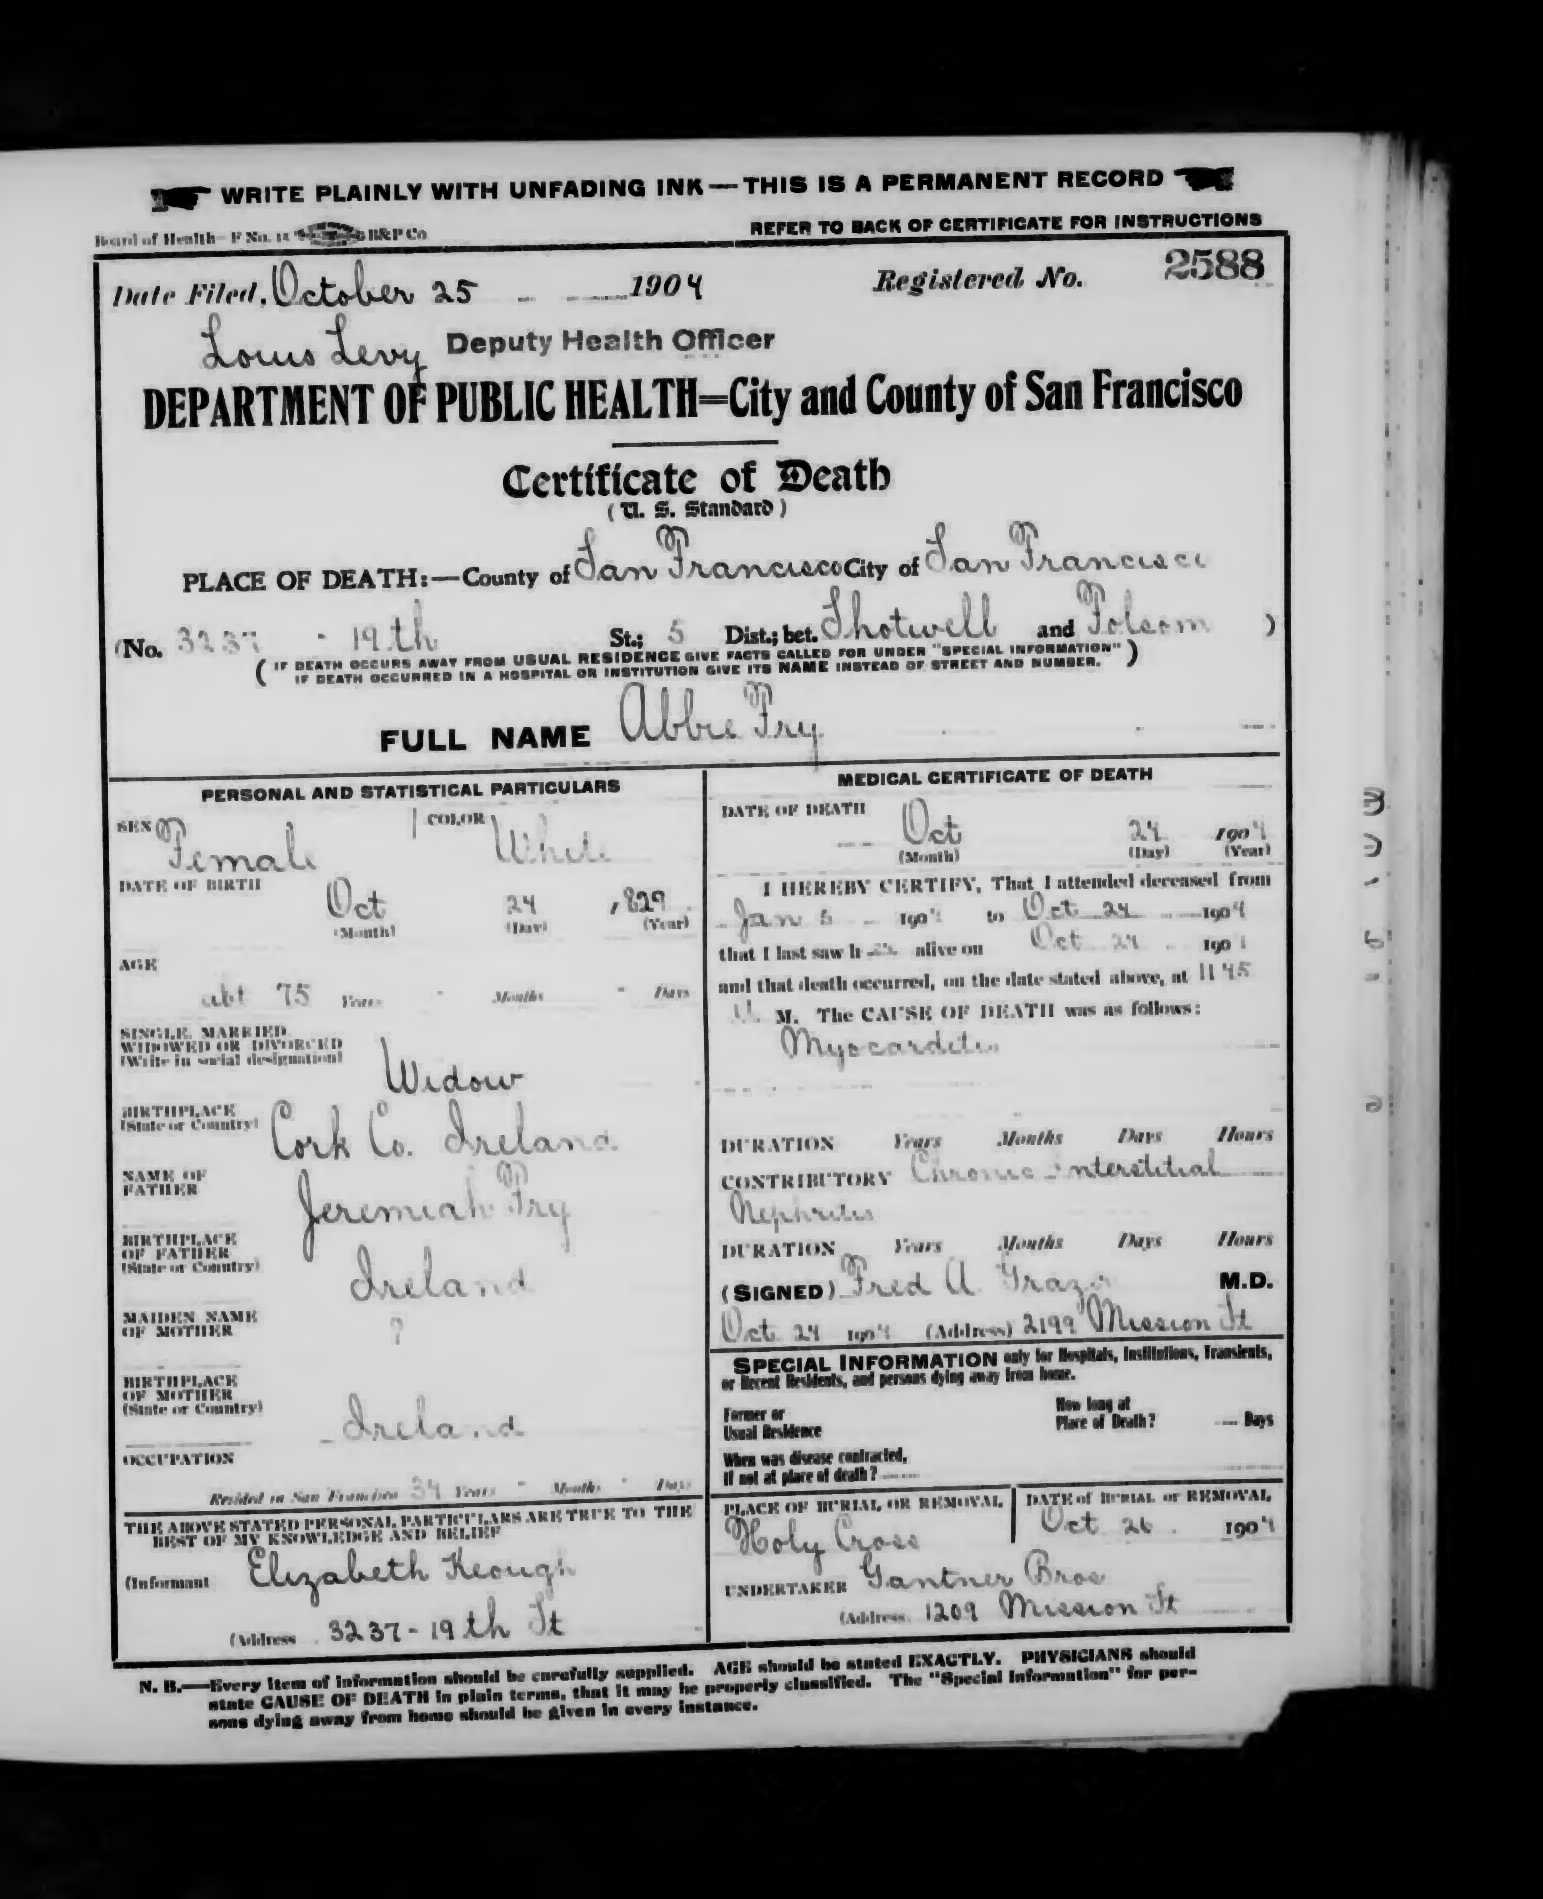 WRITE PLAINLY WITH UNFADING INK — THIS IS A PERMANENT RECORD
Board of Health—F No. B&P Co
REFER TO BACK OF CERTIFICATE FOR INSTRUCTIONS
Date Filed, October 25 1904 Registered No. 2588
Louis Levy Deputy Health Officer
DEPARTMENT OF PUBLIC HEALTH=City and County of San Francisco
Certificate of Death
(U. S. Standard)
PLACE OF DEATH:—County of San Francisco City of San Francisco
(No. 3237 - 19th St.; 5 Dist.; bet. Shotwell and Folsom )
(IF DEATH OCCURS AWAY FROM USUAL RESIDENCE GIVE FACTS CALLED FOR UNDER "SPECIAL INFORMATION"
IF DEATH OCCURRED IN A HOSPITAL OR INSTITUTION GIVE ITS NAME INSTEAD OF STREET AND NUMBER.)
FULL NAME Abbie Fry
PERSONAL AND STATISTICAL PARTICULARS
SEX Female COLOR White
DATE OF BIRTH Oct 24 , 829
(Month) (Day) (Year)
AGE
abt 75 Years - Months - Days
SINGLE, MARRIED,
WIDOWED OR DIVORCED
(Write in social designation)
Widow
BIRTHPLACE
(State or Country)
Cork Co. Ireland
NAME OF
FATHER
Jeremiah Fry
BIRTHPLACE
OF FATHER
(State or Country)
Ireland
MAIDEN NAME
OF MOTHER
?
BIRTHPLACE
OF MOTHER
(State or Country)
Ireland
OCCUPATION
Resided in San Francisco 34 Years - Months - Days
THE ABOVE STATED PERSONAL PARTICULARS ARE TRUE TO THE
BEST OF MY KNOWLEDGE AND BELIEF
(Informant Elizabeth Keough
(Address 3237 - 19th St
MEDICAL CERTIFICATE OF DEATH
DATE OF DEATH
Oct 24 1904
(Month) (Day) (Year)
I HEREBY CERTIFY, That I attended deceased from
Jan 5 1904 to Oct 24 1904
that I last saw h alive on Oct 24 190
and that death occurred, on the date stated above, at 11 45
M. The CAUSE OF DEATH was as follows:
Myocarditis
DURATION Years Months Days Hours
CONTRIBUTORY Chronic Interstitial
Nephritis
DURATION Years Months Days Hours
(SIGNED) Fred A. M.D.
Oct 24 1904 (Address) 2199 Mission St
SPECIAL INFORMATION only for Hospitals, Institutions, Transients,
or Recent Residents, and persons dying away from home.
Former or
Usual Residence
How long at
Place of Death? Days
When was disease contracted,
If not at place of death?
PLACE OF BURIAL OR REMOVAL
Holy Cross
DATE of BURIAL or REMOVAL
Oct 26 1904
UNDERTAKER Gantner Bros
(Address 1209 Mission St
N. B.—Every item of information should be carefully supplied. AGE should be stated EXACTLY. PHYSICIANS should
state CAUSE OF DEATH in plain terms, that it may be properly classified. The "Special Information" for per-
sons dying away from home should be given in every instance.